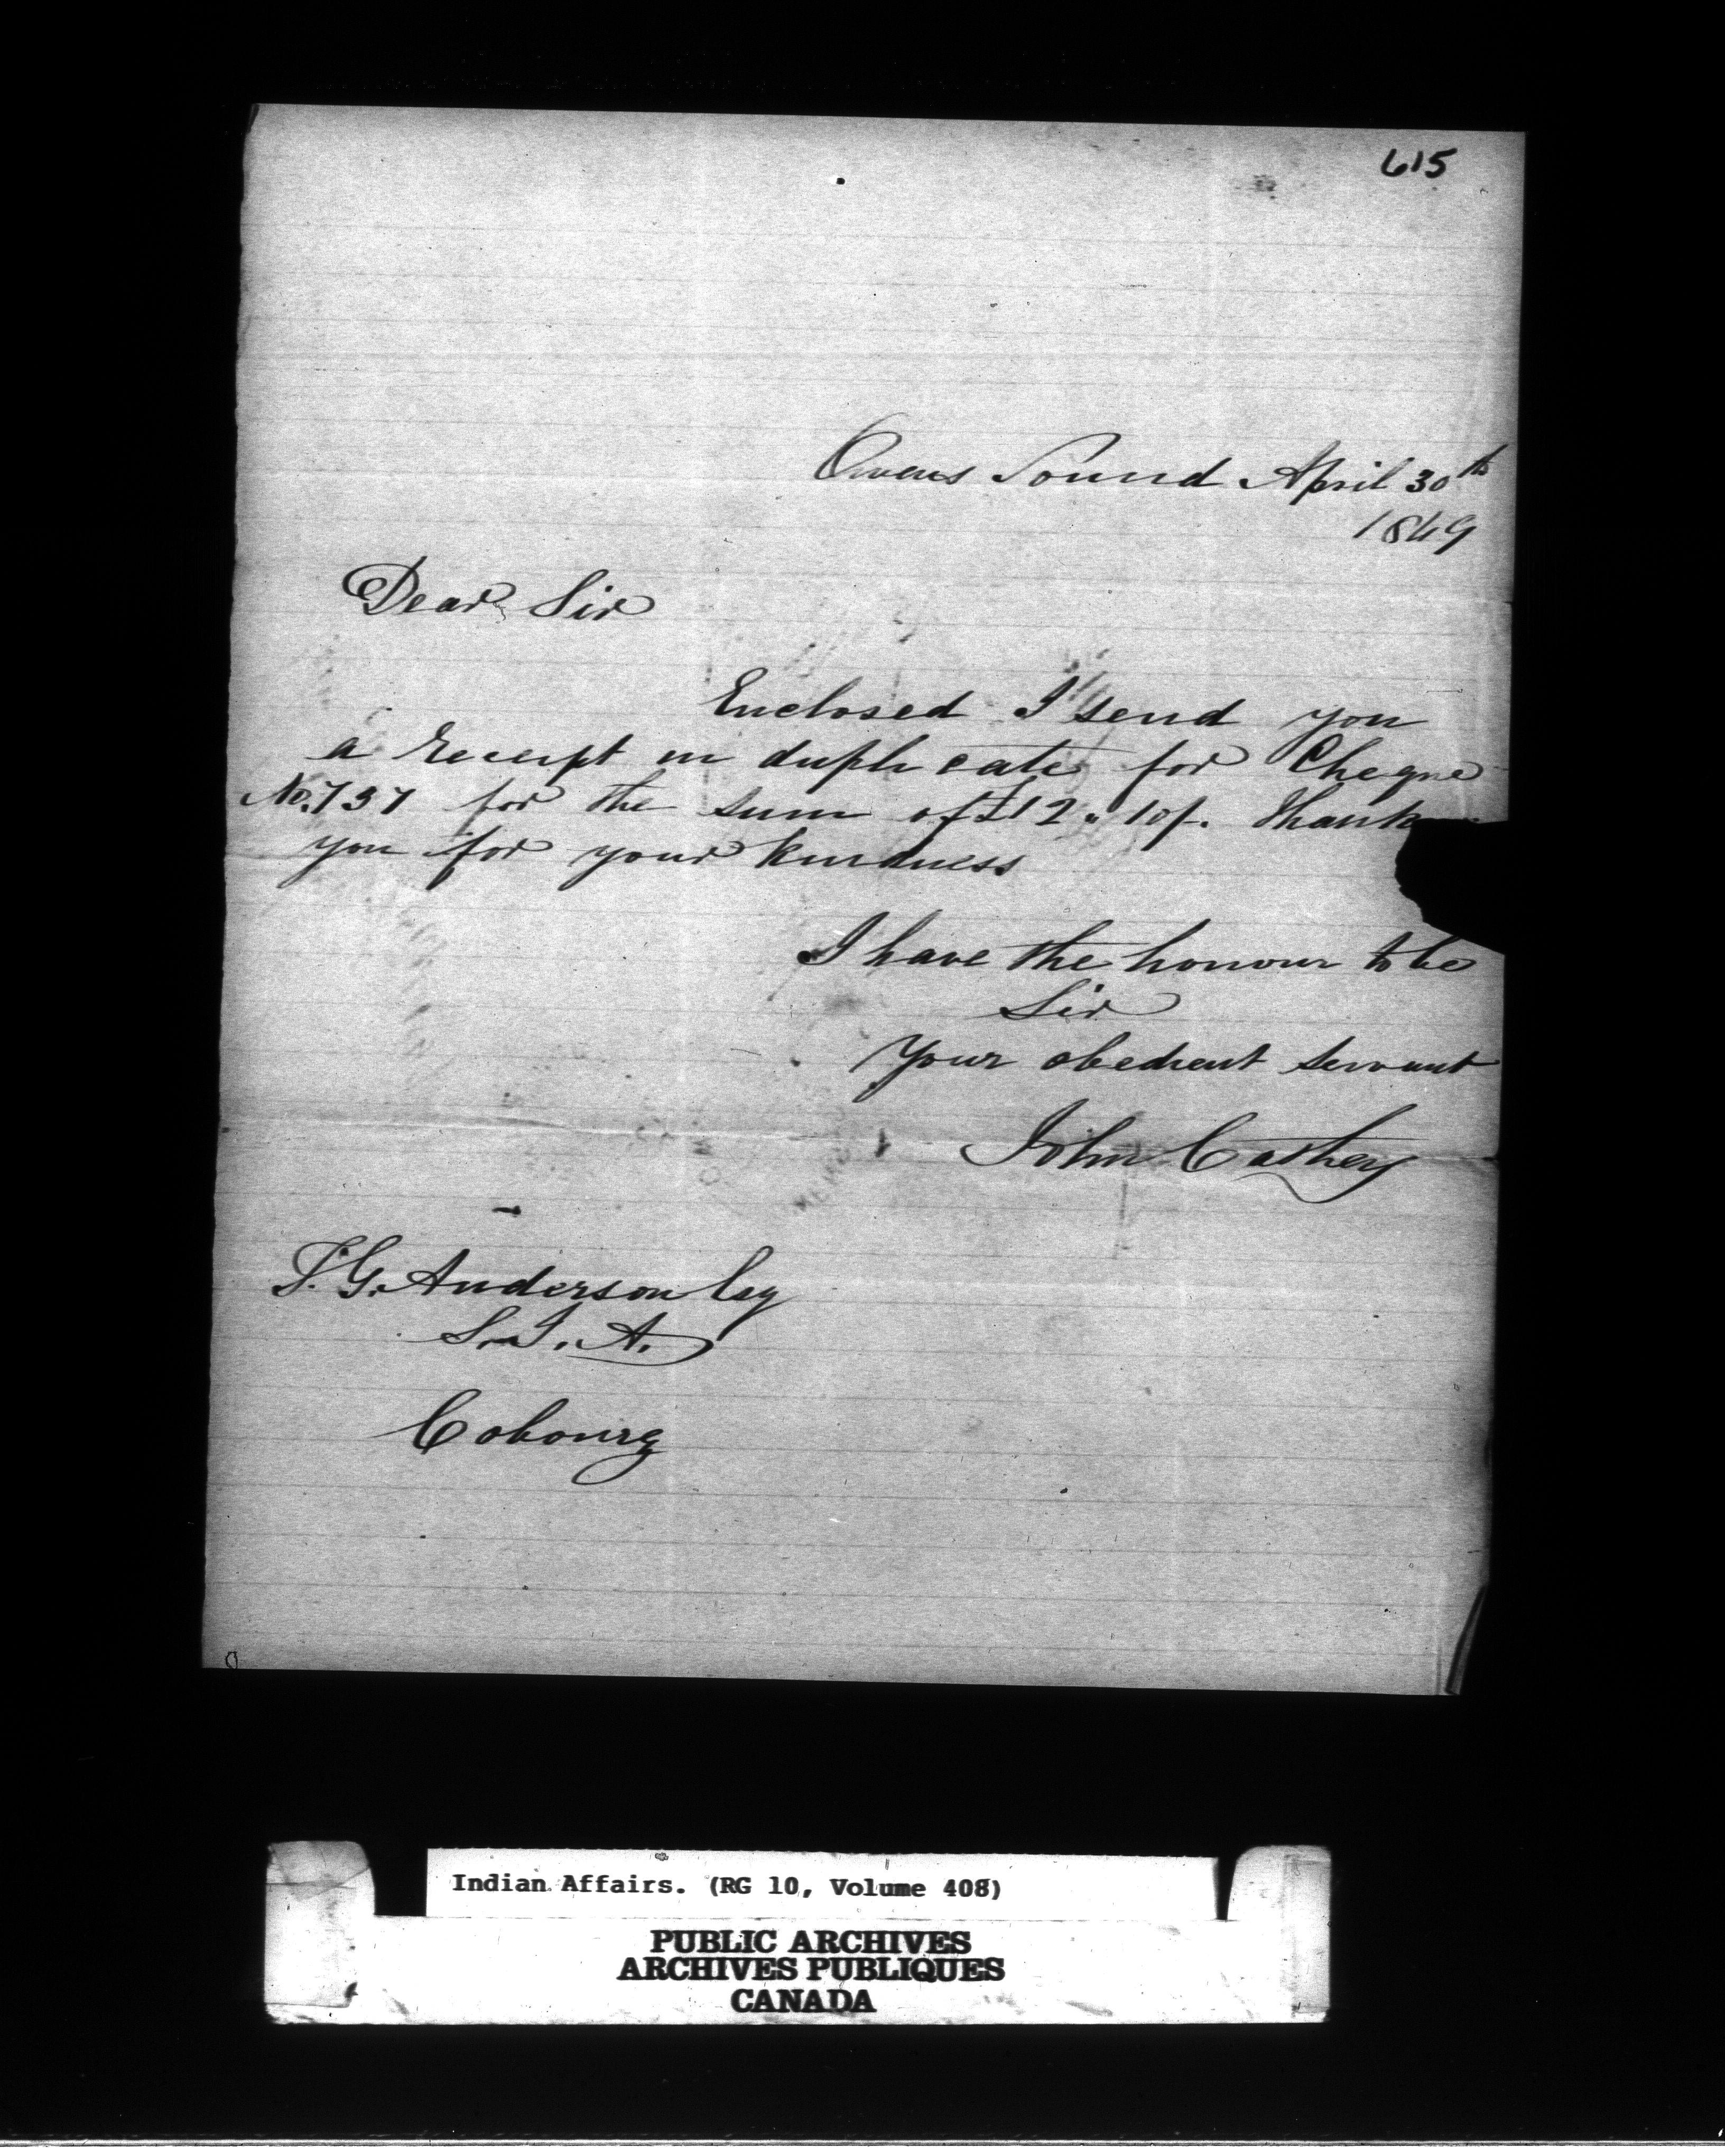 615
Owens Sound April 30th
1849
Dear Sir
Enclosed I send you
a receipt in duplicate for Cheque
No. 737 for the sum of £12 " 10/. Thank
you for your kindness
I have the honour to be
Sir
Your obedient servant
John Cathey
T. G. Anderson Esq
S. I. A.
Cobourg
Indian Affairs. (RG 10, Volume 408)
PUBLIC ARCHIVES
ARCHIVES PUBLIQUES
CANADA